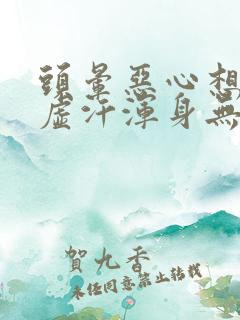 頭暈惡心想
虛汗渾身無
賀九香
未經同意禁止轉載